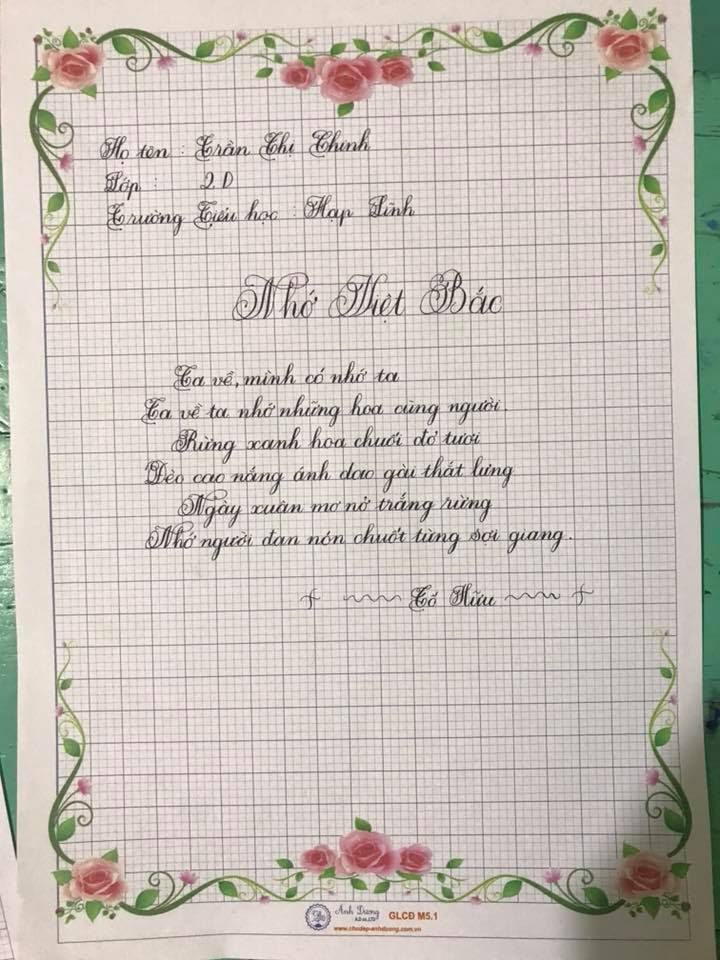 Họ tên : Trần Thị Chinh
Lớp : 2D
Trường Tiểu học : Hạp Lĩnh
Nhớ Việt Bắc
Ta về, mình có nhớ ta
Ta về ta nhớ những hoa cùng người.
Rừng xanh hoa chuối đỏ tươi
Đèo cao nắng ánh dao gài thắt lưng
Ngày xuân mơ nở trắng rừng
Nhớ người đan nón chuốt từng sợi giang.
Tố Hữu
Ánh Dương
GLCĐ M5.1
www.chudep-anhduong.com.vn